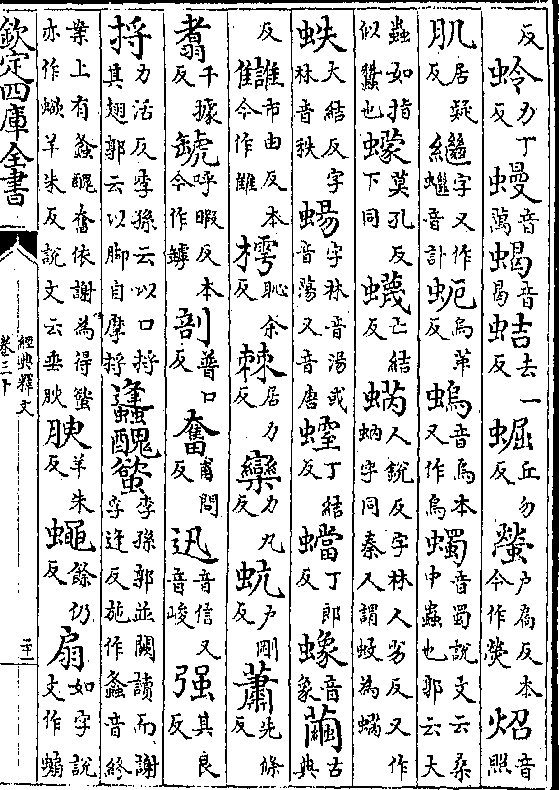 反蛉力丁反蟃音萬蝎音曷蛣去一反蝠丘勿反螢户扃反本今作熒炤音照
肌居疑反繼字又作蠿音計虵烏苐反螐音烏本又作烏蠋音蜀說文云桑中蟲也郭云大
蟲如指似蠶也蠓莫孔反下同蠛亡結反蜹人銳反字林人劣反又作蚋字同秦人謂蚊為蜹
蛈大結反字林音秩蝪字林音湯或音蕩又音唐螲丁結反蟷丁郎反蟓音象繭古典
反讎市由反本今作雔樗恥余反棘居力反欒力丸反蚢户剛反蕭先條反
翥千據反䖔呼暇反本今作罅剖普口反奮甫問反迅音信又音峻强其良反
捋力活反李孫云以口捋其翅郭云以脚自摩捋螽醜螸李孫郭並闕讀而謝孚逢反施作螽音終
業上有螽醜奮依謝為得螸亦作蠍羊朱反說文云垂腴腴羊朱反蠅餘仍反扇如字說文作蝙
欽定四庫全書
經典釋文
卷三十
二十一